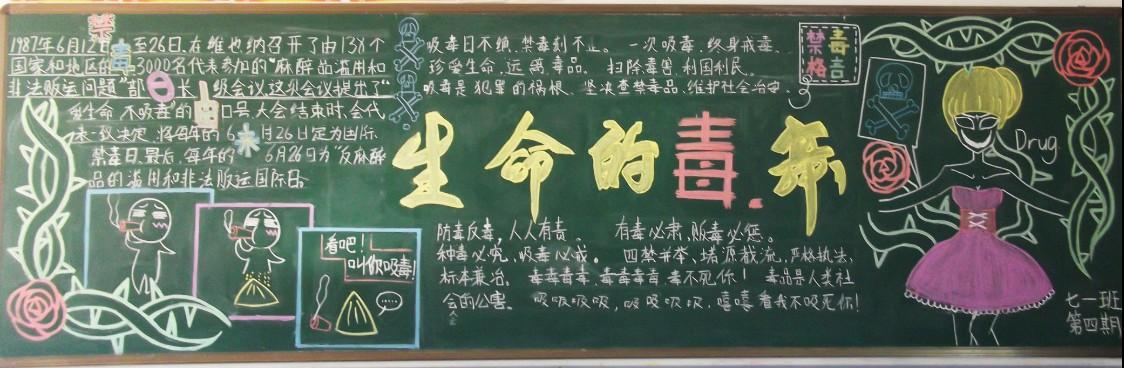 禁毒日的由来
1987年6月12日至26日,在维也纳召开了由138个
国家和地区的3000名代表参加的“麻醉品滥用和
非法贩运问题”部长级会议这次会议提出了“
爱生命,不吸毒”的口号,大会结束时,会代
表一致决定,将每年的6月26日定为国际
禁毒日.最后,每年的6月26日为“反麻醉
品的滥用和非法贩运国际日。
看吧!
叫你吸毒!
吸毒日不绝,禁毒刻不止。一次吸毒,终身戒毒。
珍爱生命,远离毒品。扫除毒害,利国利民。
吸毒是犯罪的祸根,坚决查禁毒品,维护社会治安。
禁毒
格言
生命的毒.
防毒反毒,人人有责。有毒必肃,贩毒必惩。
种毒必究,吸毒必戒。四禁并举、堵源截流,严格执法、
标本兼治。毒毒毒毒,毒毒毒毒,毒不死你!毒品是人类社
会的公害。吸吸吸吸,吸吸吸吸,嘻嘻,看我不吸死你!
Drug
七一班
第四期